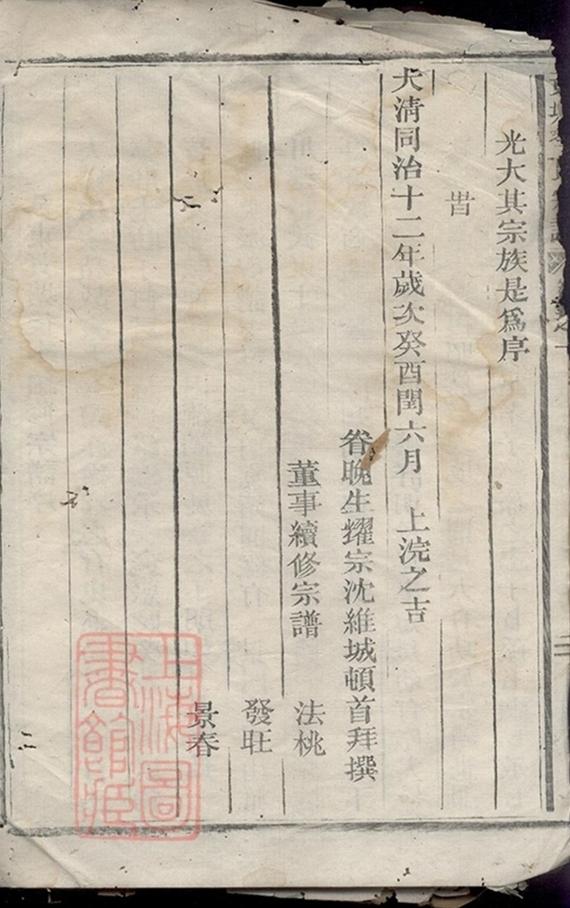 光大其宗族是爲序
旹
大清同治十二年歲次癸酉閏六月 上浣之吉
眷晚生耀宗沈維城頓首拜撰
董事續修宗譜 法桃
發旺
景春
上海圖
書館藏